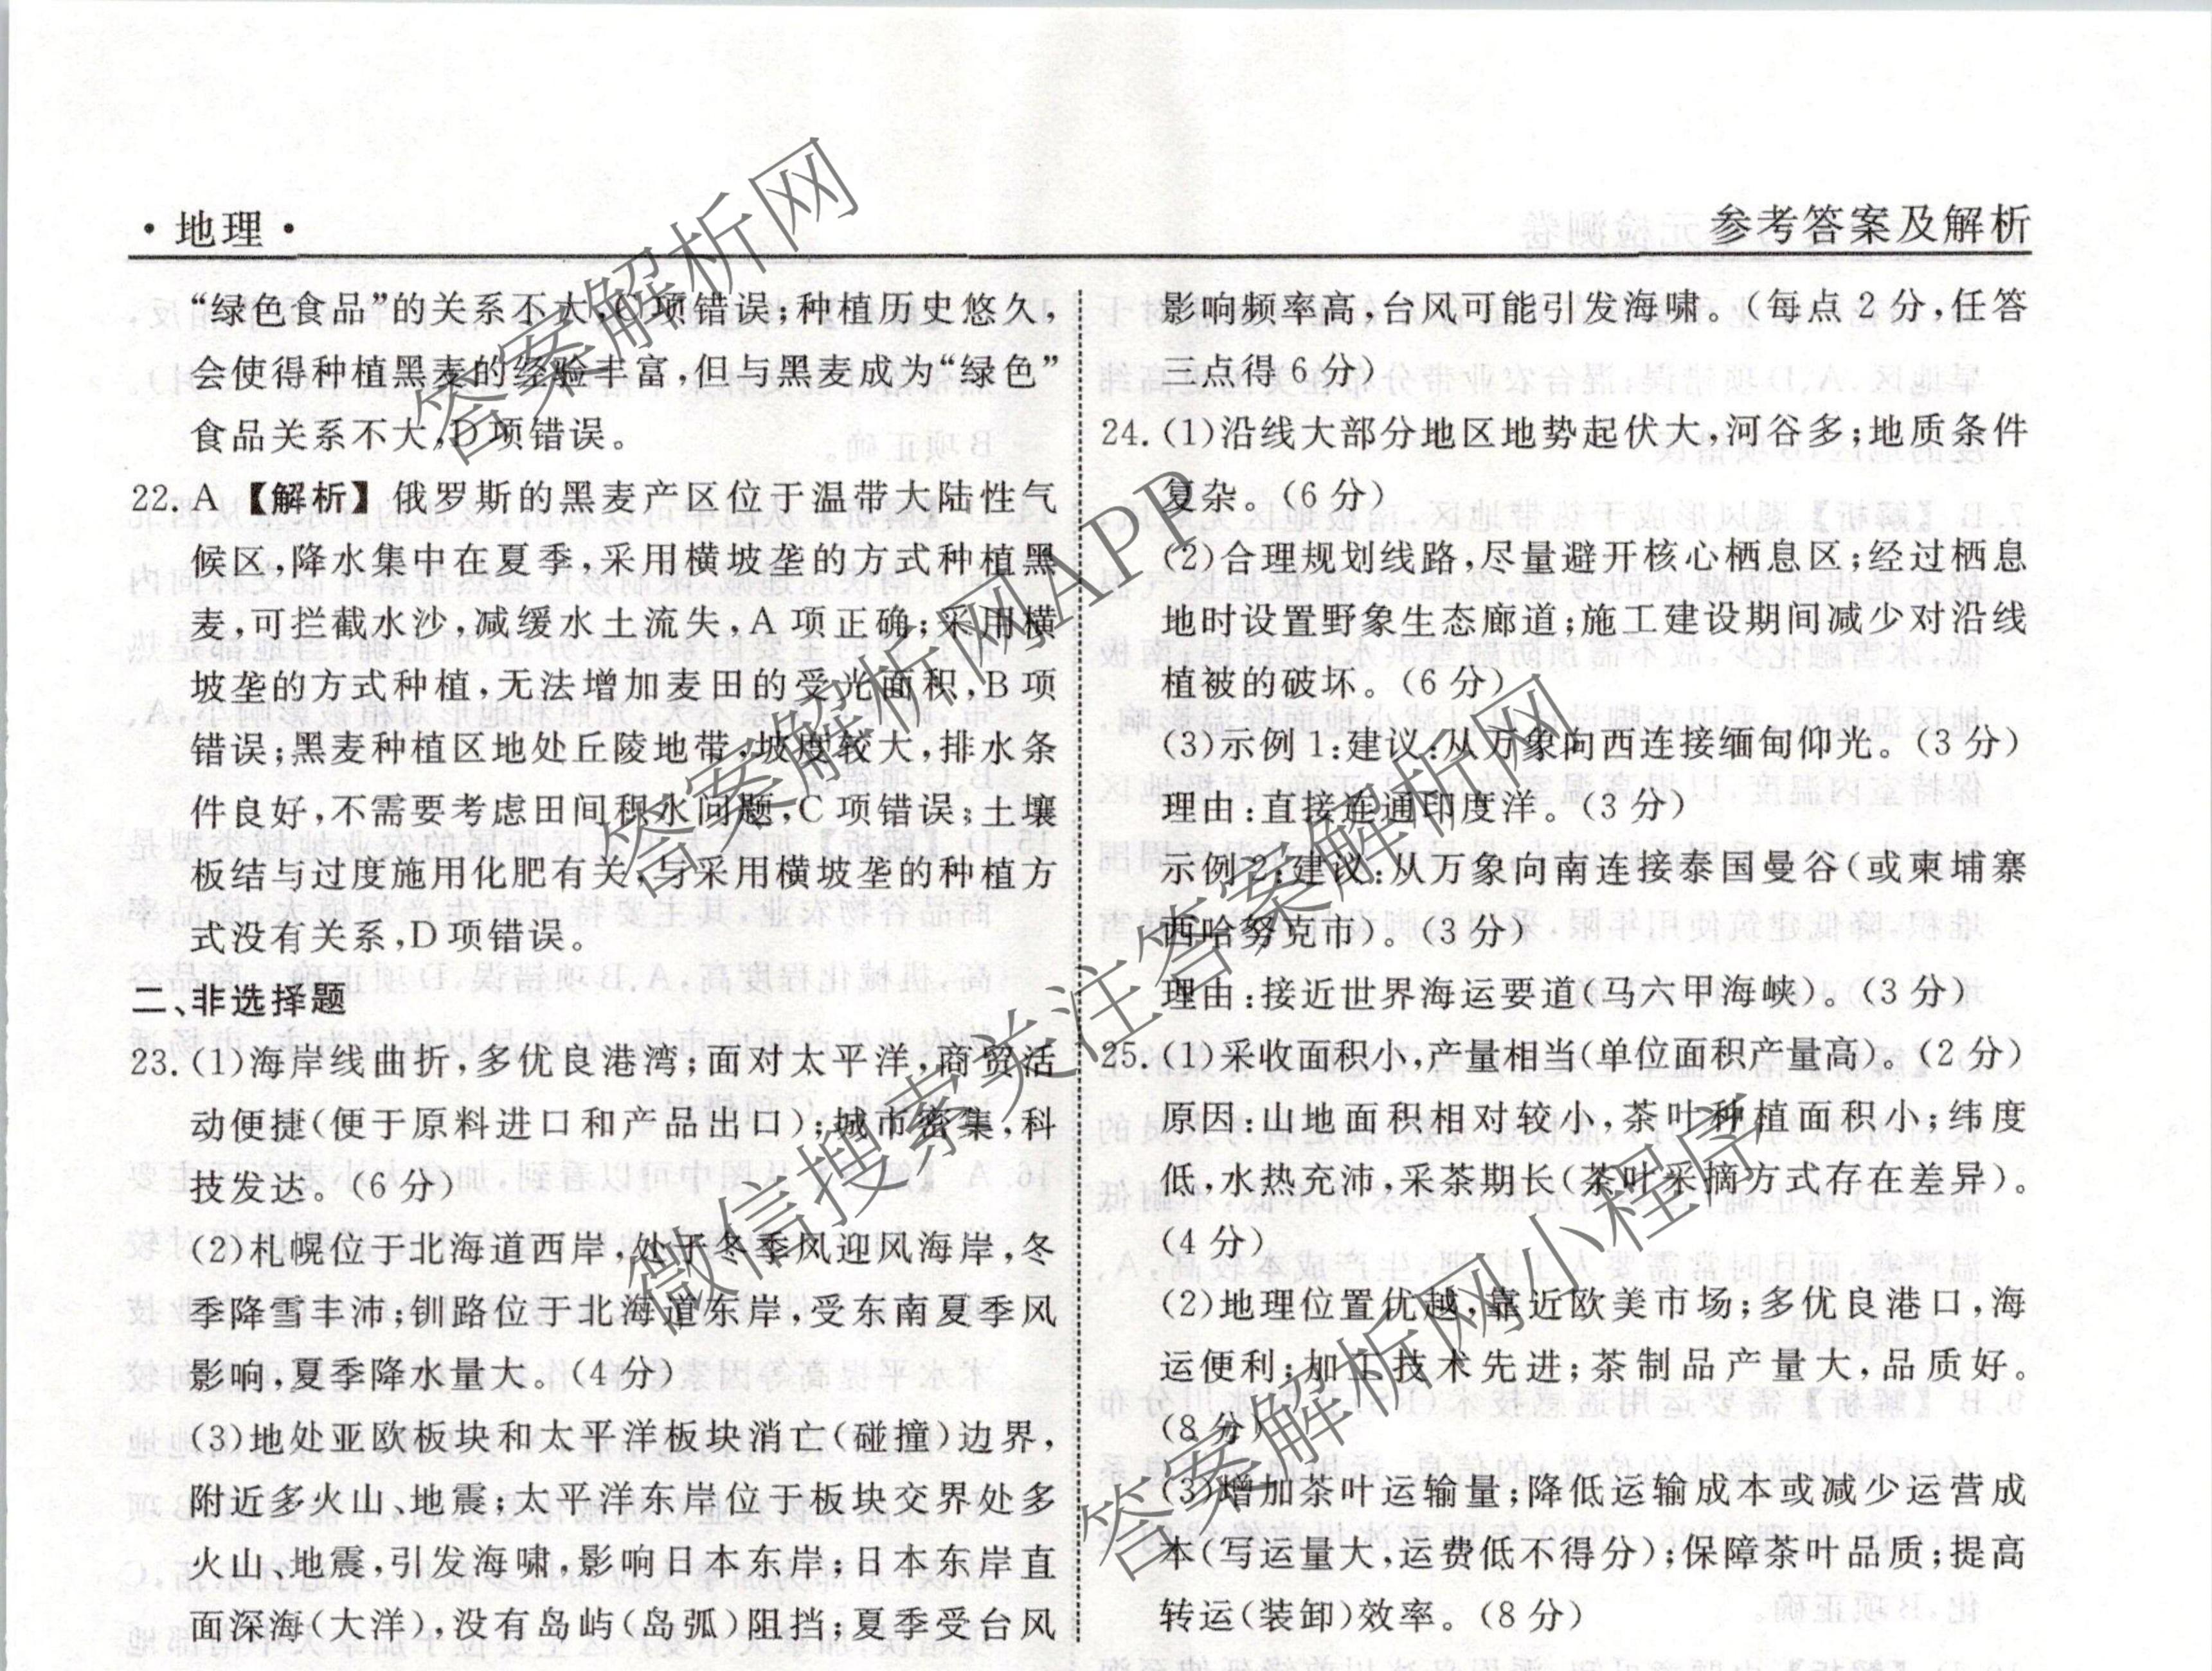 ·地理·
参考答案及解析
“绿色食品”的关系不大,C项错误;种植历史悠久,
会使得种植黑麦的经验丰富,但与黑麦成为“绿色”
食品关系不大,D项错误。
22. A 【解析】俄罗斯的黑麦产区位于温带大陆性气
候区,降水集中在夏季,采用横坡垄的方式种植黑
麦,可拦截水沙,减缓水土流失,A项正确;采用横
坡垄的方式种植,无法增加麦田的受光面积,B项
错误;黑麦种植区地处丘陵地带,坡度较大,排水条
件良好,不需要考虑田间积水问题,C项错误;土壤
板结与过度施用化肥有关,与采用横坡垄的种植方
式没有关系,D项错误。
二、非选择题
23. (1)海岸线曲折,多优良港湾;面对太平洋,商贸活
动便捷(便于原料进口和产品出口);城市密集,科
技发达。(6分)
(2)札幌位于北海道西岸,处于冬季风迎风海岸,冬
季降雪丰沛;钏路位于北海道东岸,受东南夏季风
影响,夏季降水量大。(4分)
(3)地处亚欧板块和太平洋板块消亡(碰撞)边界,
附近多火山、地震;太平洋东岸位于板块交界处多
火山、地震,引发海啸,影响日本东岸;日本东岸直
面深海(大洋),没有岛屿(岛弧)阻挡;夏季受台风
影响频率高,台风可能引发海啸。(每点2分,任答
三点得6分)
24. (1)沿线大部分地区地势起伏大,河谷多;地质条件
复杂。(6分)
(2)合理规划线路,尽量避开核心栖息区;经过栖息
地时设置野象生态廊道;施工建设期间减少对沿线
植被的破坏。(6分)
(3)示例1:建议:从万象向西连接缅甸仰光。(3分)
理由:直接连通印度洋。(3分)
示例2:建议:从万象向南连接泰国曼谷(或柬埔寨
西哈努克市)。(3分)
理由:接近世界海运要道(马六甲海峡)。(3分)
25. (1)采收面积小,产量相当(单位面积产量高)。(2分)
原因:山地面积相对较小,茶叶种植面积小;纬度
低,水热充沛,采茶期长(茶叶采摘方式存在差异)。
(4分)
(2)地理位置优越,靠近欧美市场;多优良港口,海
运便利;加工技术先进;茶制品产量大,品质好。
(8分)
(3)增加茶叶运输量;降低运输成本或减少运营成
本(写运量大,运费低不得分);保障茶叶品质;提高
转运(装卸)效率。(8分)
答案解析网
答案解析网APP
微信搜索关注答案解析网
答案解析网小程序